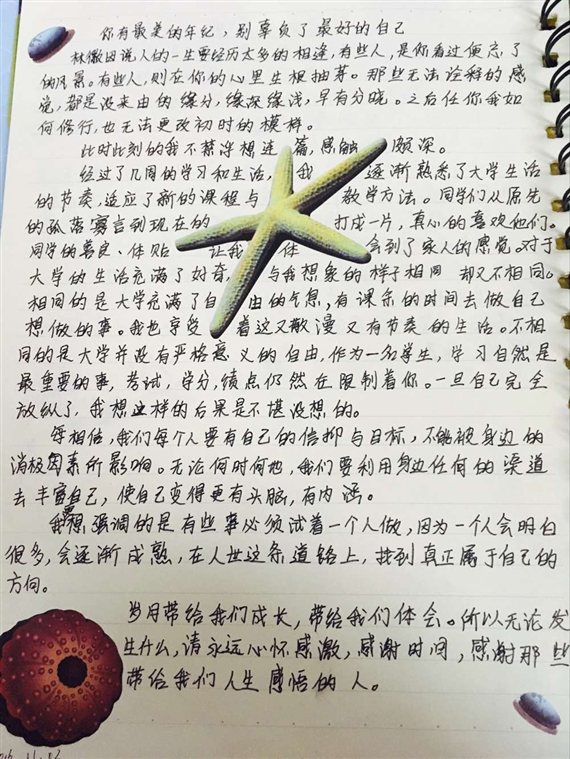 你有最美的年纪，别辜负了最好的自己
林徽因说人的一生要经历太多的相逢，有些人，是你看过便忘了
的风景。有些人，则在你的心里生根抽芽。那些无法诠释的感
觉，都是没来由的缘分，缘深缘浅，早有分晓。之后任你我如
何修行，也无法更改初时的模样。
此时此刻的我不禁浮想连篇，感触颇深。
经过了几周的学习和生活，我逐渐熟悉了大学生活
的节奏，适应了新的课程与教学方法。同学们从原先
的孤落寡言到现在的打成一片，真心的喜欢他们。
同学的善良、体贴让我体会到了家人的感觉。对于
大学的生活充满了好奇，与我想象的样子相同却又不相同。
相同的是大学充满了自由的气息，有课余的时间去做自己
想做的事。我也享受着这又散漫又有节奏的生活。不相
同的是大学并没有严格意义的自由，作为一名学生，学习自然是
最重要的事，考试，学分，绩点仍然在限制着你。一旦自己完全
放纵了，我想这样的后果是不堪设想的。
我相信，我们每个人要有自己的信仰与目标，不能被身边的
消极因素所影响。无论何时何地，我们要利用身边任何的渠道
去丰富自己，使自己变得更有头脑，有内涵。
我想强调的是有些事必须试着一个人做，因为一个人会明白
很多，会逐渐成熟，在人世这条道路上，找到真正属于自己的
方向。
岁月带给我们成长，带给我们体会。所以无论发
生什么，请永远心怀感激，感谢时间，感谢那些
带给我们人生感悟的人。